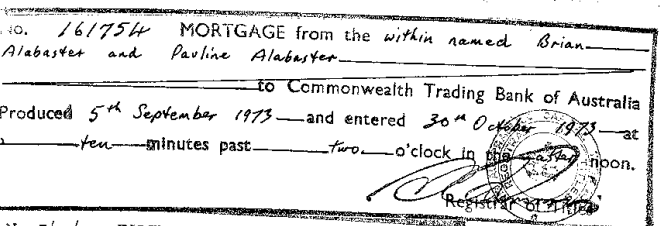 No. 161754 MORTGAGE from the within named Brian
Alabaster and Pauline Alabaster
to Commonwealth Trading Bank of Australia
Produced 5th September 1973 and entered 30th October 1973 at
ten minutes past two o'clock in the after noon.
Registrar of Titles